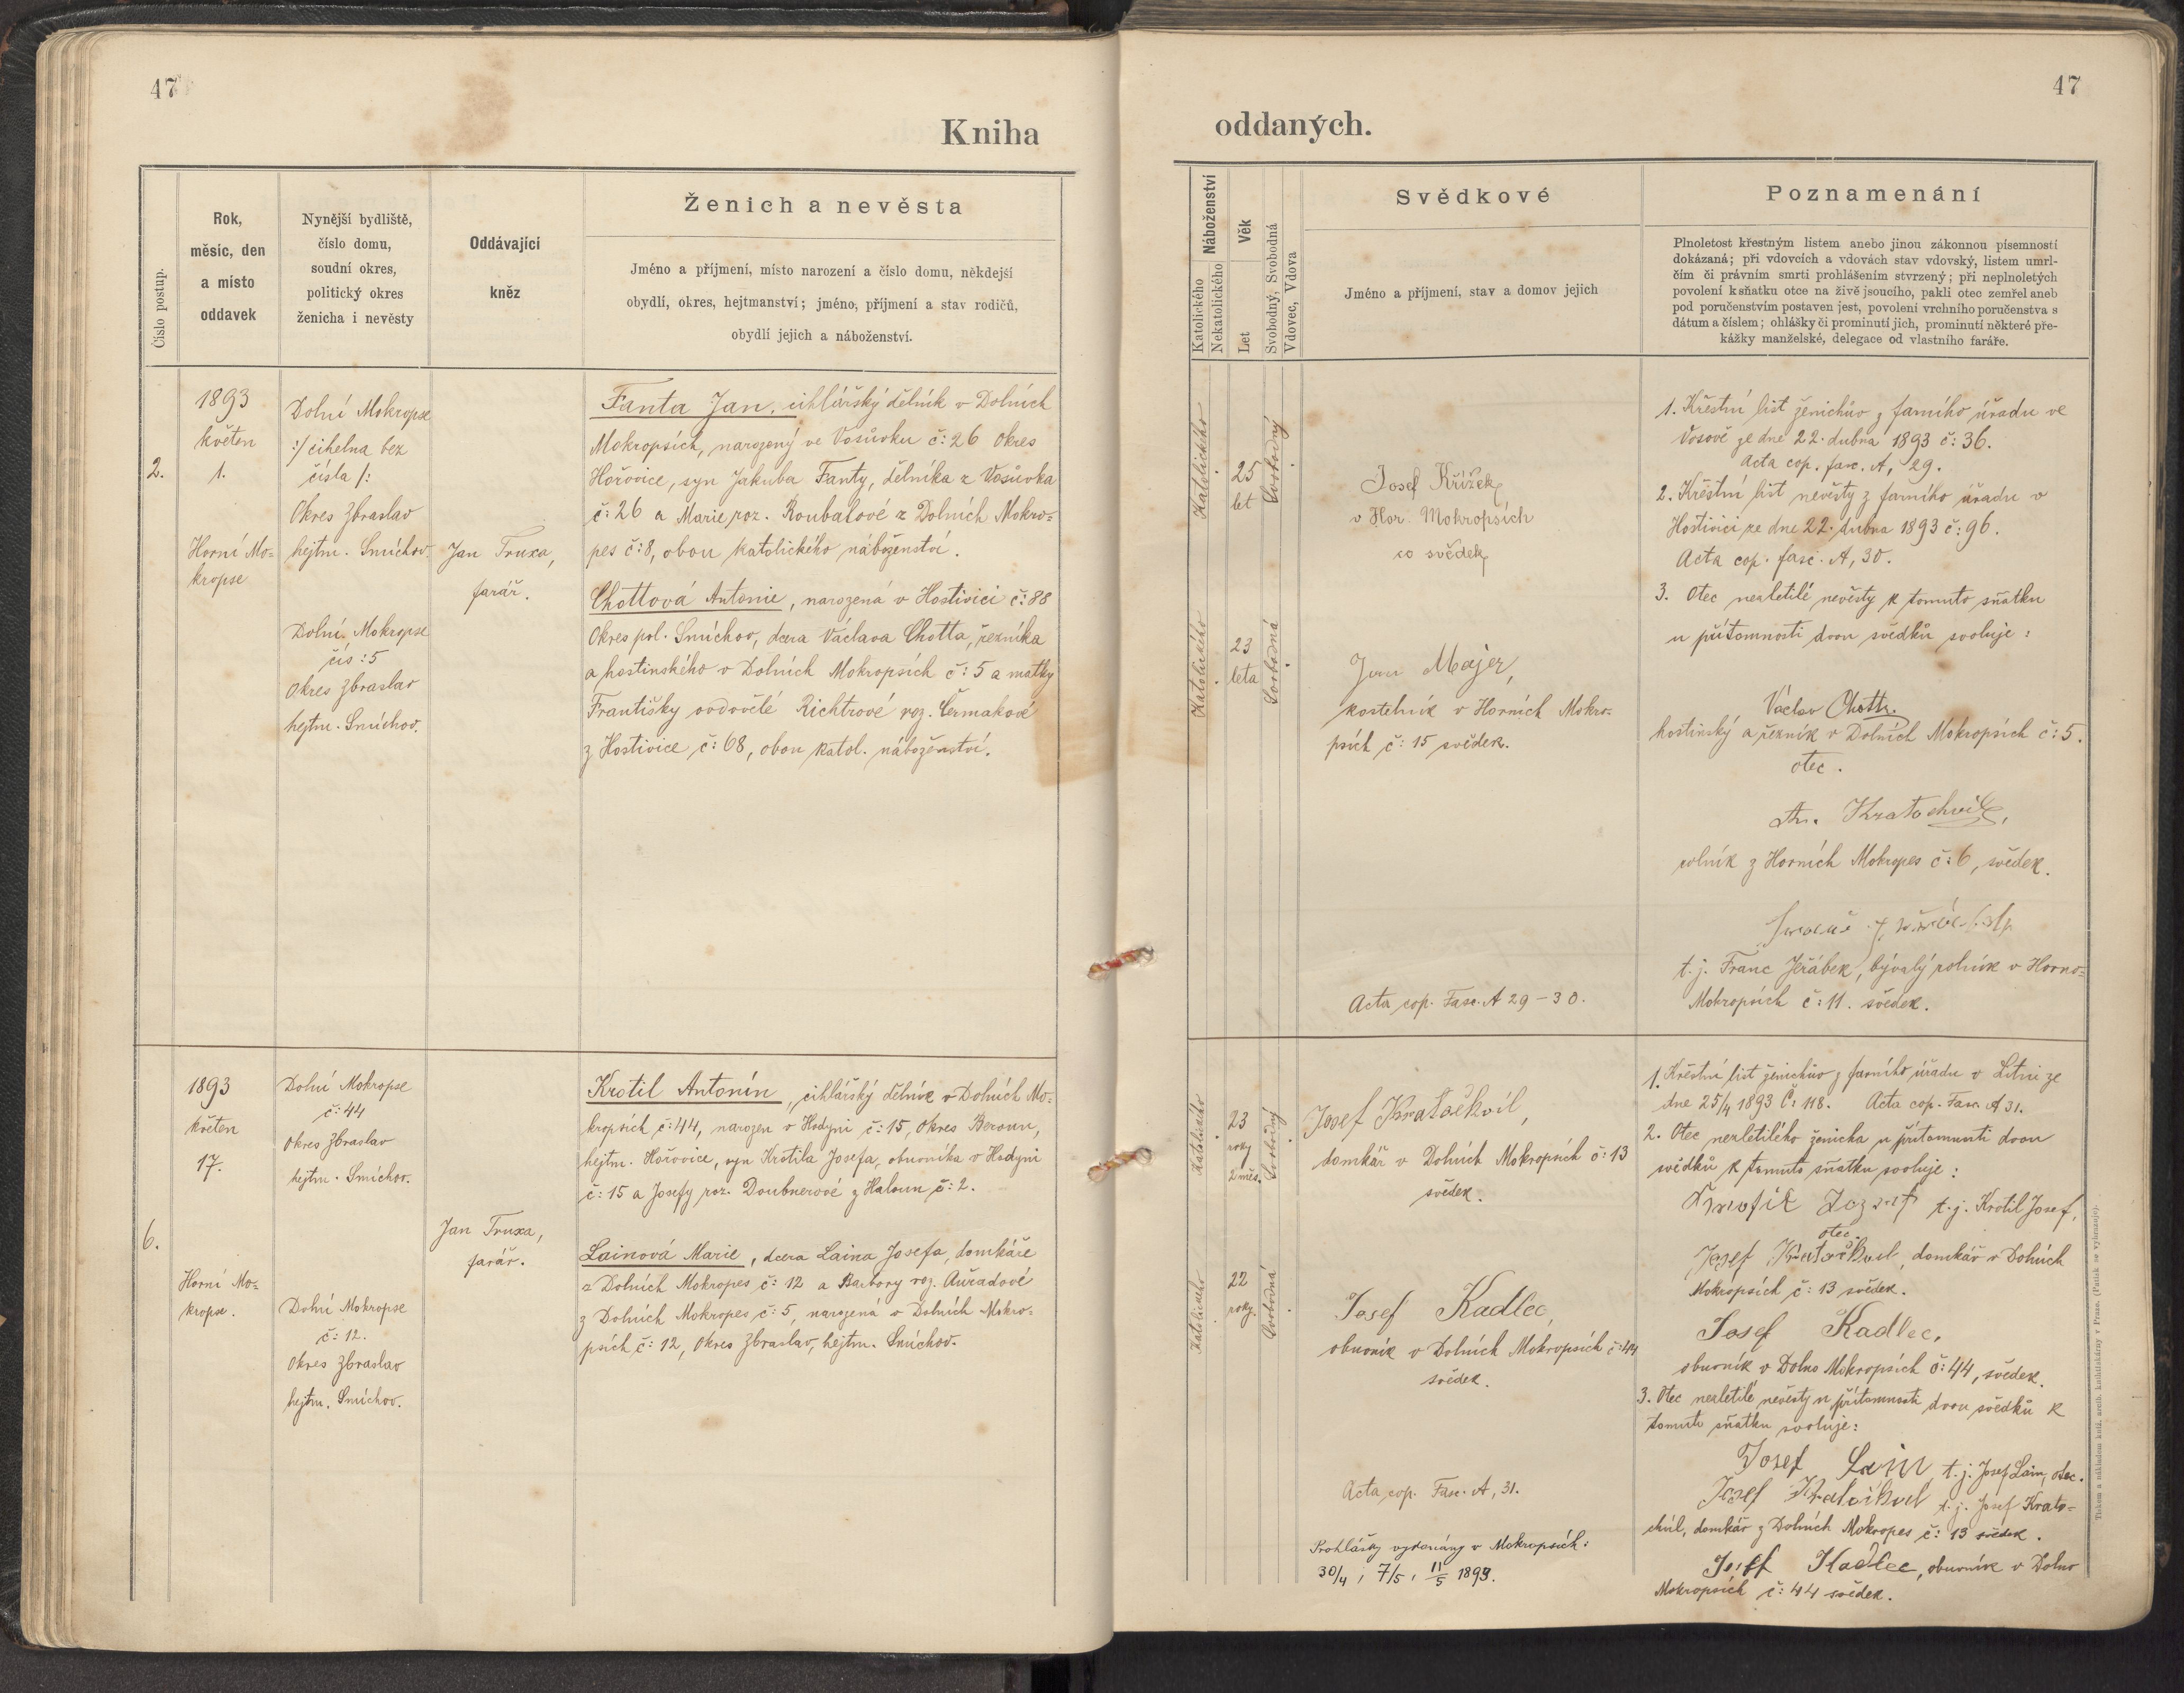 47
Kniha
Číslo postup.
Rok,
měsíc, den
a místo
oddavek
Nynější bydliště,
číslo domu,
soudní okres,
politický okres
ženicha i nevěsty
Oddávající
kněz
Ženich a nevěsta
Jméno a příjmení, místo narození a číslo domu, někdejší
obydlí, okres, hejtmanství; jméno, příjmení a stav rodičů,
obydlí jejich a náboženství.
2.
1893
květen
1.
Horní Mo-
kropse
Dolní Mokropse
:/ cihelna bez
čísla /:
Okres Zbraslav
hejtm. Smíchov.
Dolní Mokropse
čís: 5
Okres Zbraslav
hejtm. Smíchov.
Jan Truxa,
farář.
Fanta Jan, cihlářský dělník v Dolních
Mokropsích, narozený ve Vosůvku č: 26 Okres
Hořovice, syn Jakuba Fanty, dělníka z Vosůvka
č: 26 a Marie roz. Roubalové z Dolních Mokro-
pes č: 8, obou katolického náboženství.
Chottová Antonie, narozená v Hostivici č: 88
Okres pol. Smíchov, dcera Václava Chotta, řezníka
a hostinského v Dolních Mokropsích č: 5 a matky
Františky ovdovělé Richtrové roz. Čermakové
z Hostivice č: 68, obou katol. náboženství.
6.
1893
květen
17.
Horní Mo-
kropse.
Dolní Mokropse
č: 44
Okres Zbraslav
hejtm. Smíchov.
Dolní Mokropse
č: 12.
Okres Zbraslav
hejtm. Smíchov.
Jan Truxa,
farář.
Krotil Antonín, cihlářský dělník v Dolních Mo-
kropsích č: 44, narozen v Hodyni č: 15, Okres Beroun,
hejtm. Hořovice, syn Krotila Josefa, obuvníka v Hodyni
č: 15 a Josefy roz. Doubnerové z Haloun č: 2.
Lainová Marie, dcera Laina Josefa, domkáře
z Dolních Mokropes č: 12 a Barbory roz. Auřadové
z Dolních Mokropes č: 5, narozená v Dolních Mokro-
psích č: 12, Okres Zbraslav, hejtm. Smíchov.
47
oddaných.
Náboženství
Katolického
Nekatolického
Věk
Let
Svobodný, Svobodná
Vdovec, Vdova
Svědkové
Jméno a příjmení, stav a domov jejich
Poznamenání
Plnoletost křestným listem anebo jinou zákonnou písemností
dokázaná; při vdovcích a vdovách stav vdovský, listem umrl-
čím či právním smrti prohlášením stvrzený; při neplnoletých
povolení k sňatku otce na živě jsoucího, pakli otec zemřel aneb
pod poručenstvím postaven jest, povolení vrchního poručenstva s
dátum a číslem; ohlášky či prominutí jich, prominutí některé pře-
kážky manželské, delegace od vlastního faráře.
Katolického
25
let
Svobodný
Katolického
23
leta
Svobodná
Josef Křížek,
v Hor. Mokropsích
co svědek
Jan Majer,
kostelník v Horních Mokro-
psích č: 15 svědek.
Acta cop. Fasc. A 29-30.
1. Křestní list ženichův z farního úřadu ve
Vosově ze dne 22. dubna 1893 č: 36.
Acta cop. fasc. A, 29.
2. Křestní list nevěsty z farního úřadu v
Hostivici ze dne 22. dubna 1893 č: 96.
Acta cop. fasc. A, 30.
3. Otec nezletilé nevěsty k tomuto sňatku
u přítomnosti dvou svědků svoluje:
Václav Chott.
hostinský a řezník v Dolních Mokropsích č: 5.
otec.
Kratochvil,
rolník z Horních Mokropes č: 6, svědek.
t. j. Franc Jeřábek, bývalý rolník v Horno-
Mokropsích č: 11. svědek.
Katolického
23
roky
2 měs.
Svobodný
Katolického
22
roky.
Svobodná
Josef Kratochvil,
domkář v Dolních Mokropsích č: 13
svědek.
Josef Kadlec,
obuvník v Dolních Mokropsích č: 44
svědek.
Acta cop. Fasc. A, 31.
Prohlášky vykonány v Mokropsích:
30/4, 7/5, 11/5 1893.
1. Křestní list ženichův z farního úřadu v Litni ze
dne 25/4 1893 Č: 118. Acta cop. Fasc. A 31.
2. Otec nezletilého ženicha u přítomnosti dvou
svědků k tomuto sňatku svoluje:
t. j. Krotil Josef,
otec.
Josef Kratochvil, domkář v Dolních
Mokropsích č: 13 svědek.
Josef Kadlec,
obuvník v Dolno Mokropsích č: 44, svědek.
3. Otec nezletilé nevěsty u přítomnosti dvou svědků k
tomuto sňatku svoluje:
Josef Lain t. j. Josef Lain, otec.
Josef Kratochvil t. j. Josef Krato-
chvíl, domkář z Dolních Mokropes č: 13 svědek.
Josef Kadlec, obuvník v Dolno
Mokropsích č: 44 svědek.